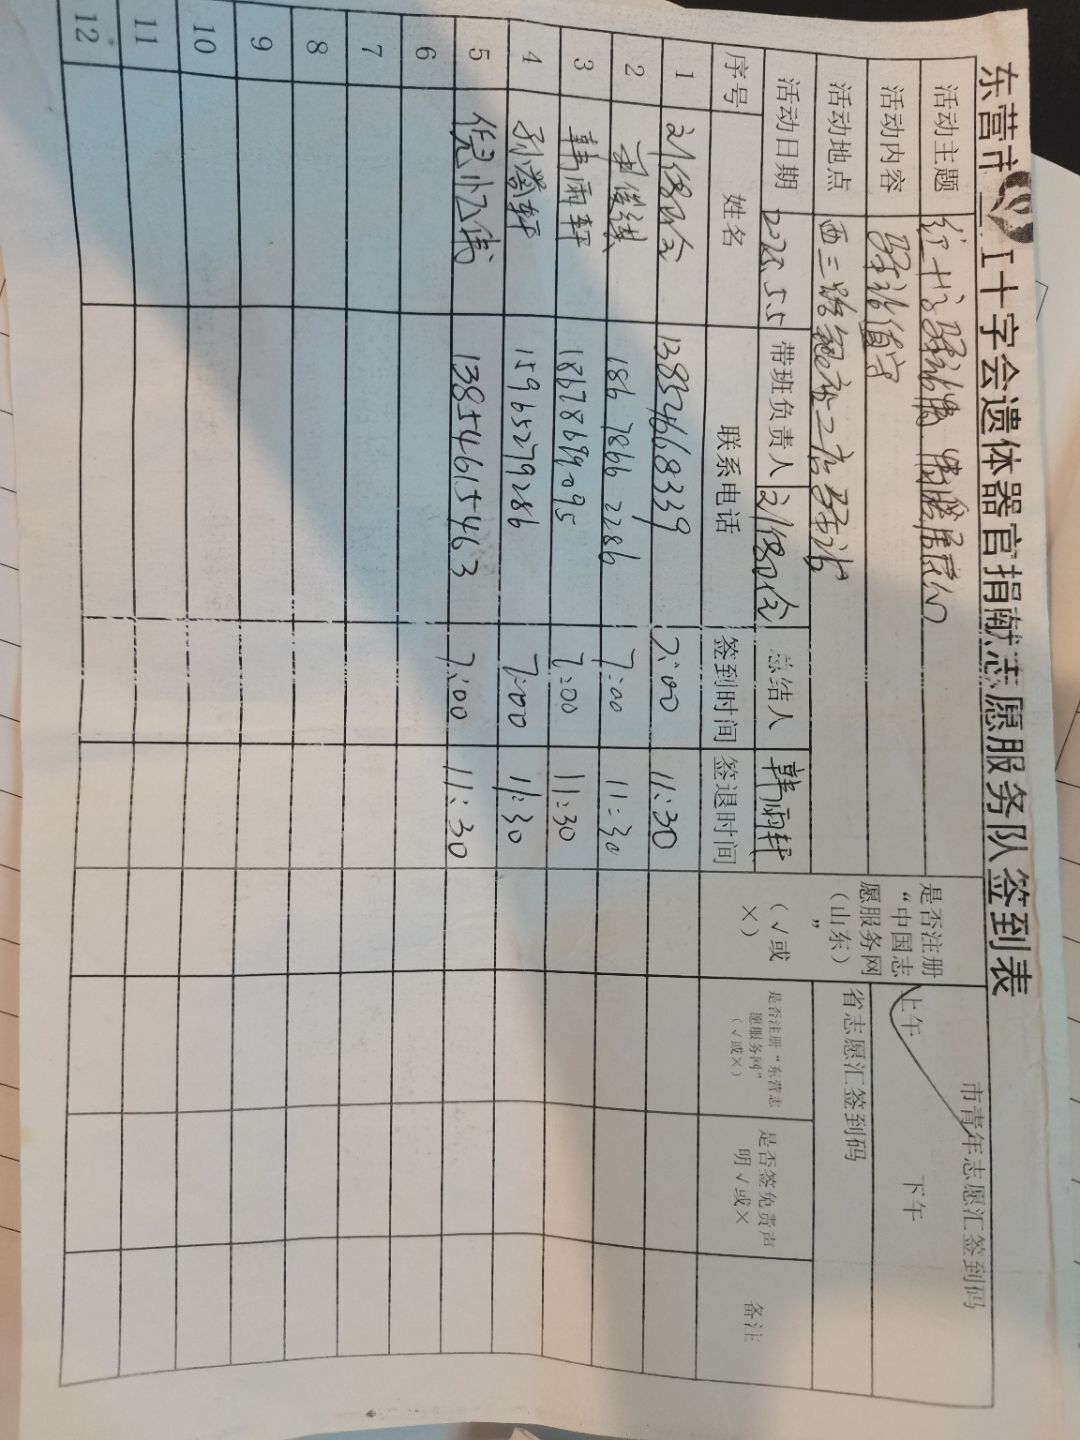 东营市 工十字会遗体器官捐献志愿服务队签到表
活动主题 红十字驿站情 情暖居民心
市青年志愿汇签到码
活动内容 驿站值守
上午 下午
活动地点 西三路 二店驿站
省志愿汇签到码
活动日期 2025.5.5 带班负责人 总结人 韩雨轩
是否注册“中国志愿服务网(山东)”(√或×)
是否注册“东营志愿服务网”(√或×)
是否签免责声明√或×
备注
序号 姓名 联系电话 签到时间 签退时间
1 13854668339 7:00 11:30
2 186 7866 2286 7:00 11:30
3 韩雨轩 18678699095 7:00 11:30
4 15965279286 7:00 11:30
5 倪忆伟 13854615463 7:00 11:30
6
7
8
9
10
11
12